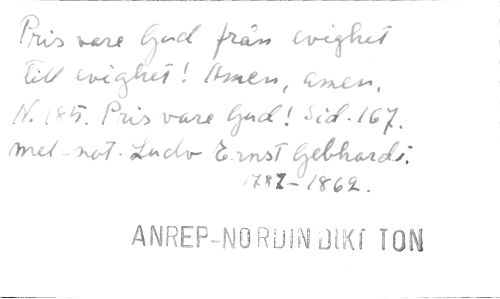 Pris vare Gud från evighet
till evighet! Amen, amen.
N. 185. Pris vare Gud! Sid. 167.
mel-not. Ludv Ernst Gebhardi.
1787-1862.
ANREP-NORDIN DIKT TON